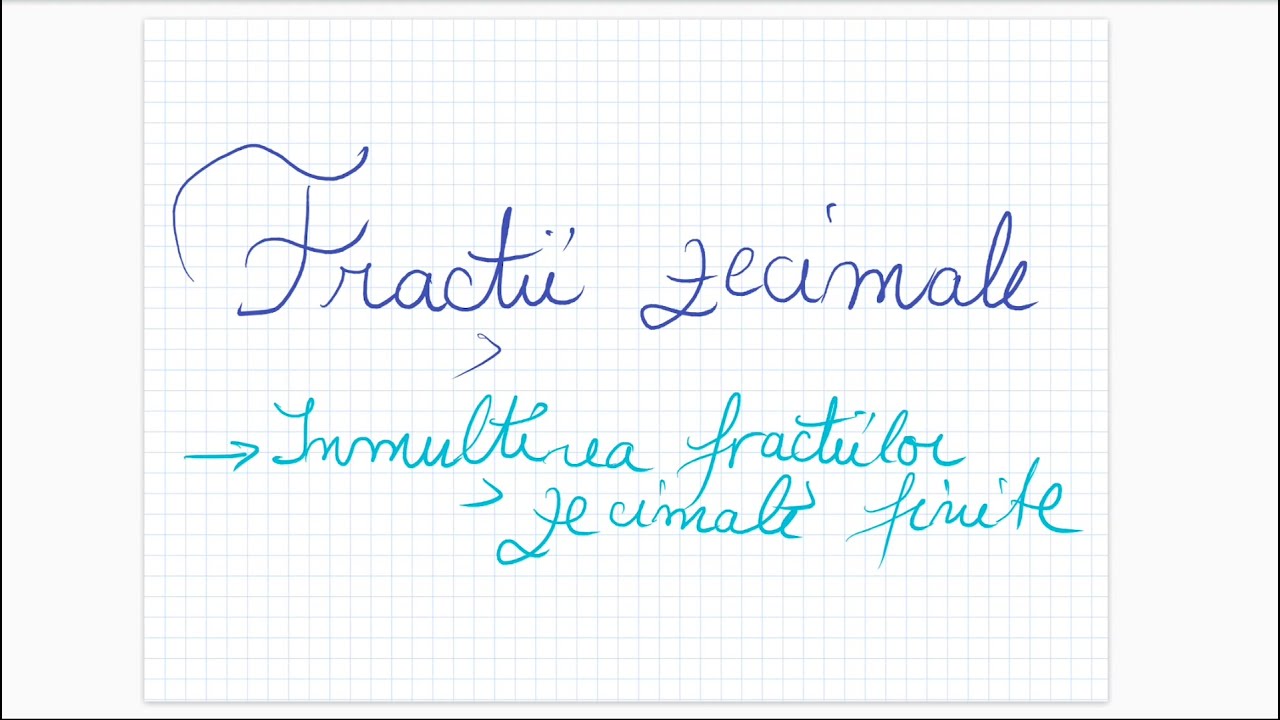 Fracții zecimale
→ Inmulțirea fracțiilor
zecimale finite